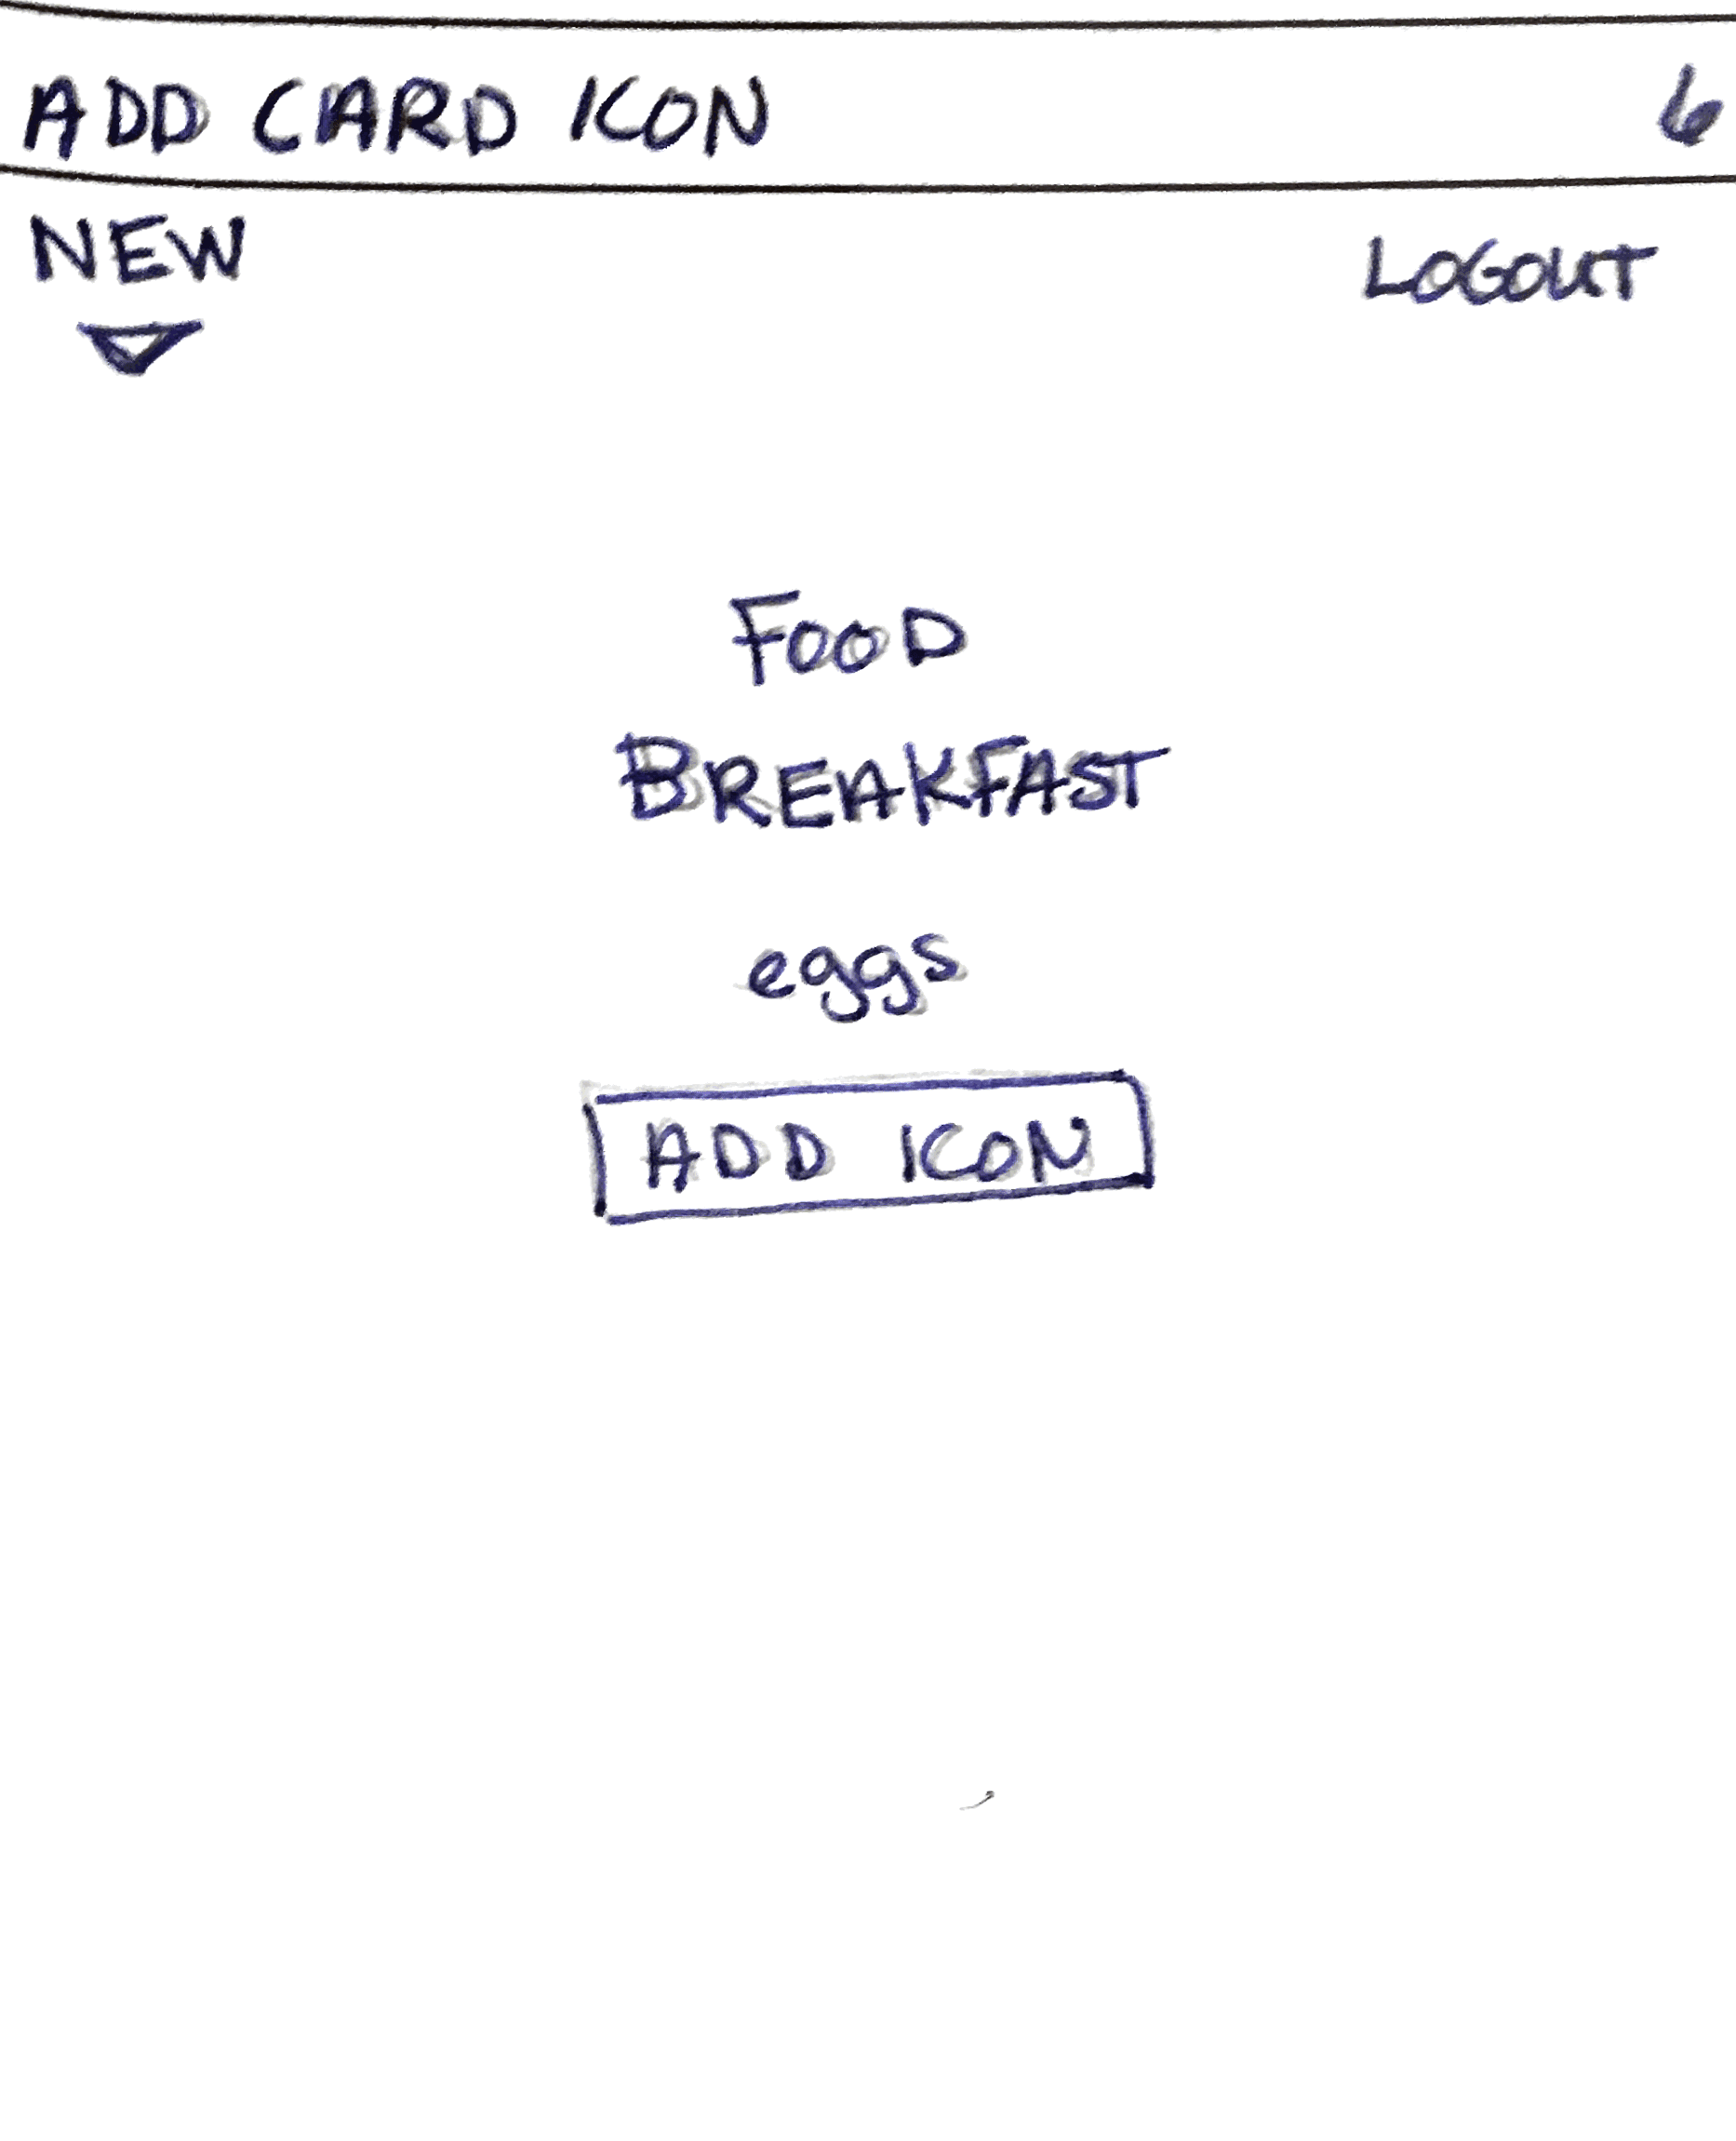 ADD CARD ICON 6
NEW LOGOUT
FOOD
BREAKFAST
eggs
ADD ICON